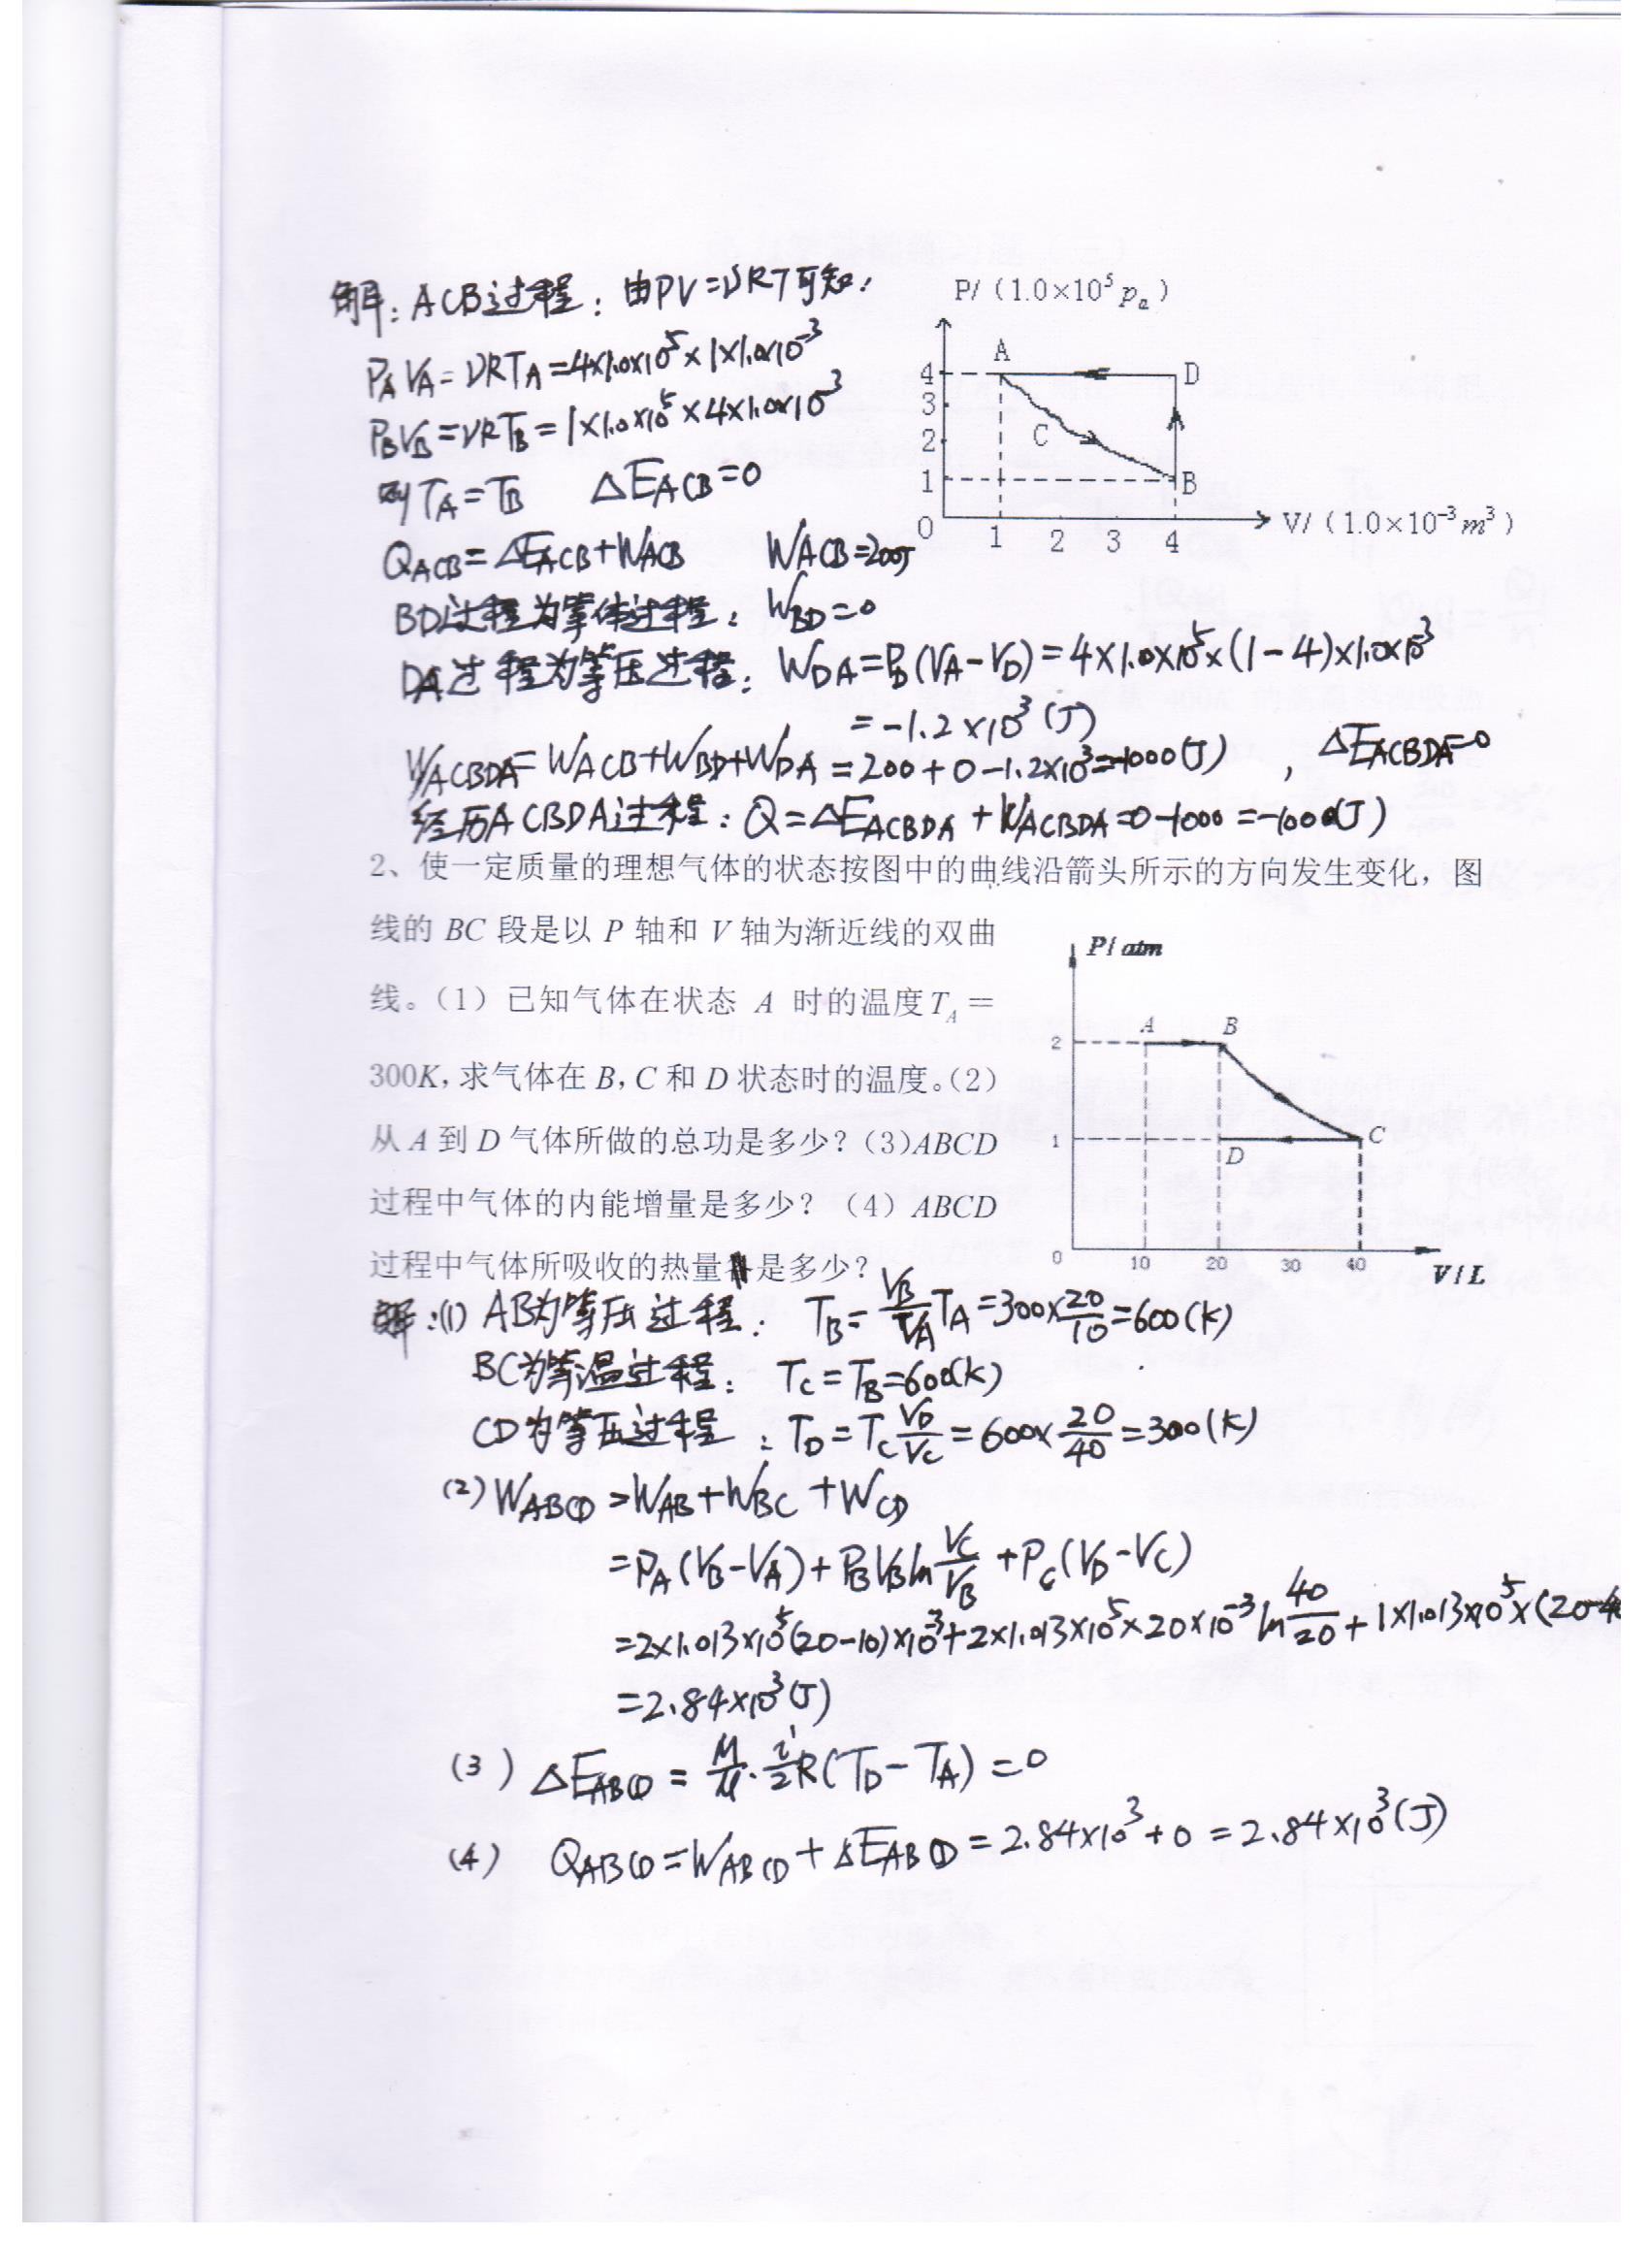 解：ACB过程：由PV=νRT可知：
P_A V_A=νRT_A=4×1.0×10^5×1×1.0×10^-3
P_B V_B=νRT_B=1×1.0×10^5×4×1.0×10^-3
则T_A=T_B ΔE_ACB=0
Q_ACB=ΔE_ACB+W_ACB W_ACB=200J
BD过程为等体过程：W_BD=0
DA过程为等压过程：W_DA=P_D(V_A-V_D)=4×1.0×10^5×(1-4)×1.0×10^-3
=-1.2×10^3(J)
W_ACBDA=W_ACB+W_BD+W_DA=200+0-1.2×10^3=-1000(J)，ΔE_ACBDA=0
经历ACBDA过程：Q=ΔE_ACBDA+W_ACBDA=0-1000=-1000(J)
P/（1.0×10^5 p_a）
A
4
D
3
2
C
1
B
0
1 2 3 4
V/（1.0×10^-3 m^3）
2、使一定质量的理想气体的状态按图中的曲线沿箭头所示的方向发生变化，图
线的 BC 段是以 P 轴和 V 轴为渐近线的双曲
线。（1）已知气体在状态 A 时的温度T_A＝
300K，求气体在 B，C 和 D 状态时的温度。（2）
从 A 到 D 气体所做的总功是多少？（3）ABCD
过程中气体的内能增量是多少？（4）ABCD
过程中气体所吸收的热量是多少？
P/atm
A B
2
1
C
D
0 10 20 30 40
V/L
解：(1) AB为等压过程：T_B=V_B/V_A T_A=300×20/10=600(K)
BC为等温过程：T_C=T_B=600(K)
CD为等压过程：T_D=T_C V_D/V_C=600×20/40=300(K)
(2) W_ABCD=W_AB+W_BC+W_CD
=P_A(V_B-V_A)+P_B V_B ln V_C/V_B+P_C(V_D-V_C)
=2×1.013×10^5(20-10)×10^-3+2×1.013×10^5×20×10^-3 ln 40/20+1×1.013×10^5×(20-40
=2.84×10^3(J)
(3) ΔE_ABCD=M/μ·i/2 R(T_D-T_A)=0
(4) Q_ABCD=W_ABCD+ΔE_ABCD=2.84×10^3+0=2.84×10^3(J)